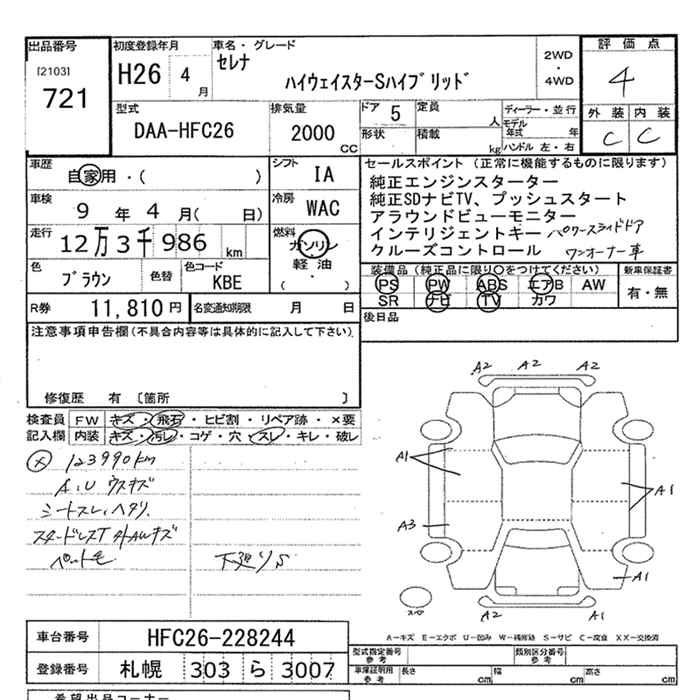 出品番号
[2103]
721
初度登録年月
H26 4月
車名・グレード
セレナ
ハイウェイスターSハイブリッド
2WD
・
4WD
評価点
4
外装 内装
C C
型式
DAA-HFC26
排気量
2000 CC
ドア 5
形状
定員 人
積載 kg
ディーラー・並行
モデル年式 年
ハンドル 左・右
車歴
自家用・( )
シフト IA
車検
9年4月( 日)
冷房 WAC
走行
12万3千986 km
燃料
ガソリン
・
軽油
・
( )
色 ブラウン
色替
色コード KBE
R券 11,810円
名変通知期限 月 日
セールスポイント (正常に機能するものに限ります)
純正エンジンスターター
純正SDナビTV、プッシュスタート
アラウンドビューモニター
インテリジェントキー パワースライドドア
クルーズコントロール ワンオーナー車
装備品(純正品に限り○をつけてください)
PS PW ABS エアB AW
SR ナビ TV カワ
新車保証書
有・無
後日品
注意事項申告欄(不具合内容等は具体的に記入して下さい)
修復歴 有 [箇所 ]
検査員記入欄
FW キズ・飛石・ヒビ割・リペア跡・×要
内装 キズ・汚レ・コゲ・穴・スレ・キレ・破レ
× 123990km
A.U ウスキズ
シートスレ、ヘタリ
スタッドレスT 外AWキズ
ペット毛
下廻りS
A2 A2 A2
A1
A1
A3
A1
A2 A1
スペア
A-キズ E-エクボ U-凹み W-補修跡 S-サビ C-腐食 XX-交換済
車台番号 HFC26-228244
登録番号 札幌 303 ら 3007
型式指定番号 参考
類別区分番号 参考
車庫証明用 参考
長さ cm 幅 cm 高さ cm
希望出品コーナー